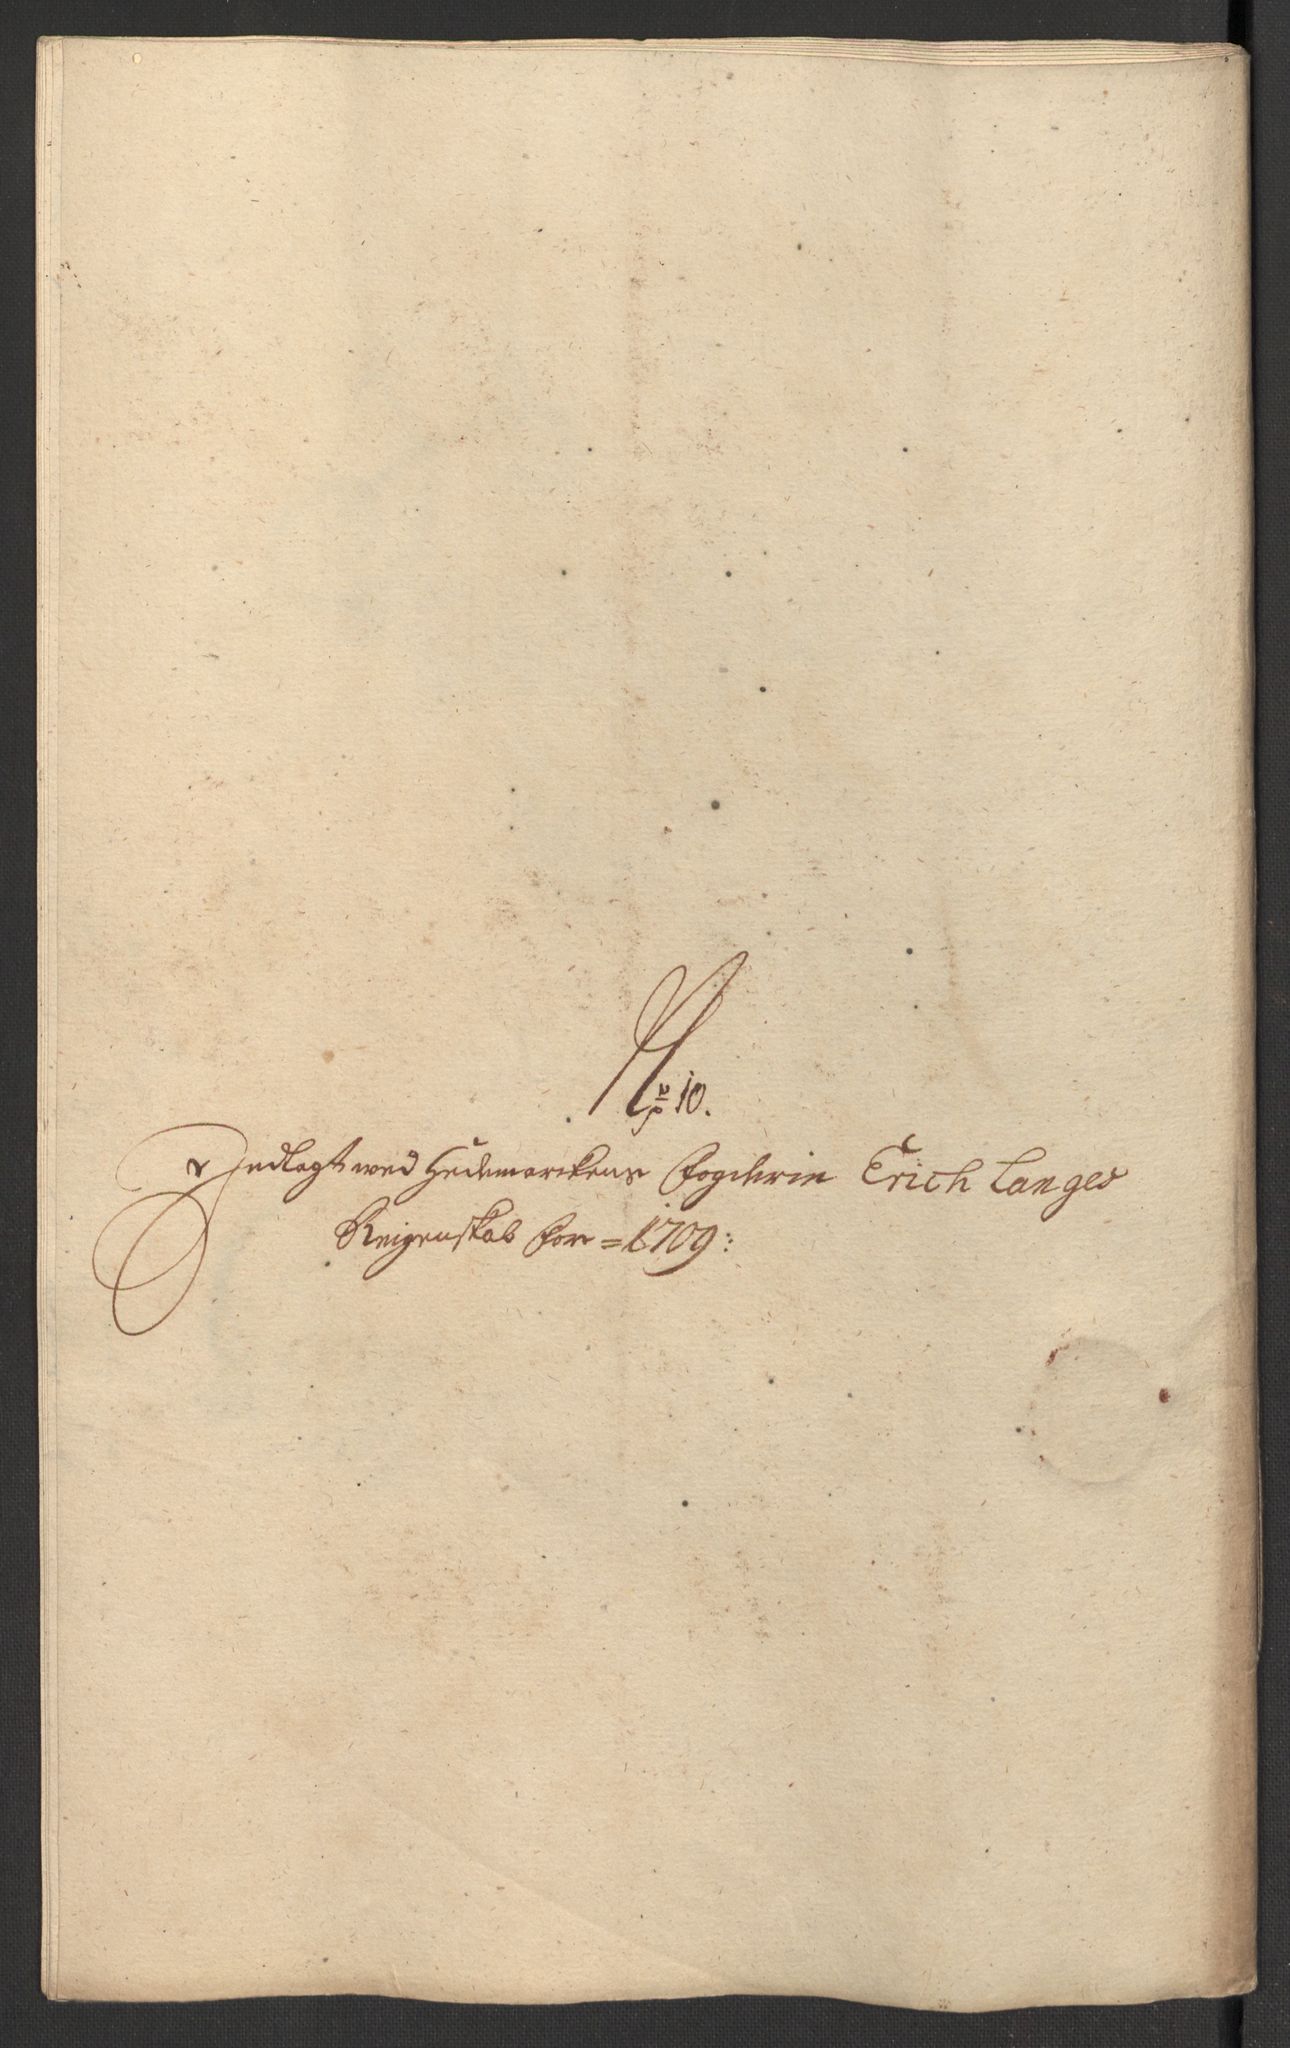 No 10.
Indlagt wed Hedemarckens Fogderie Erich Langes
Reigenskab for = 1709: